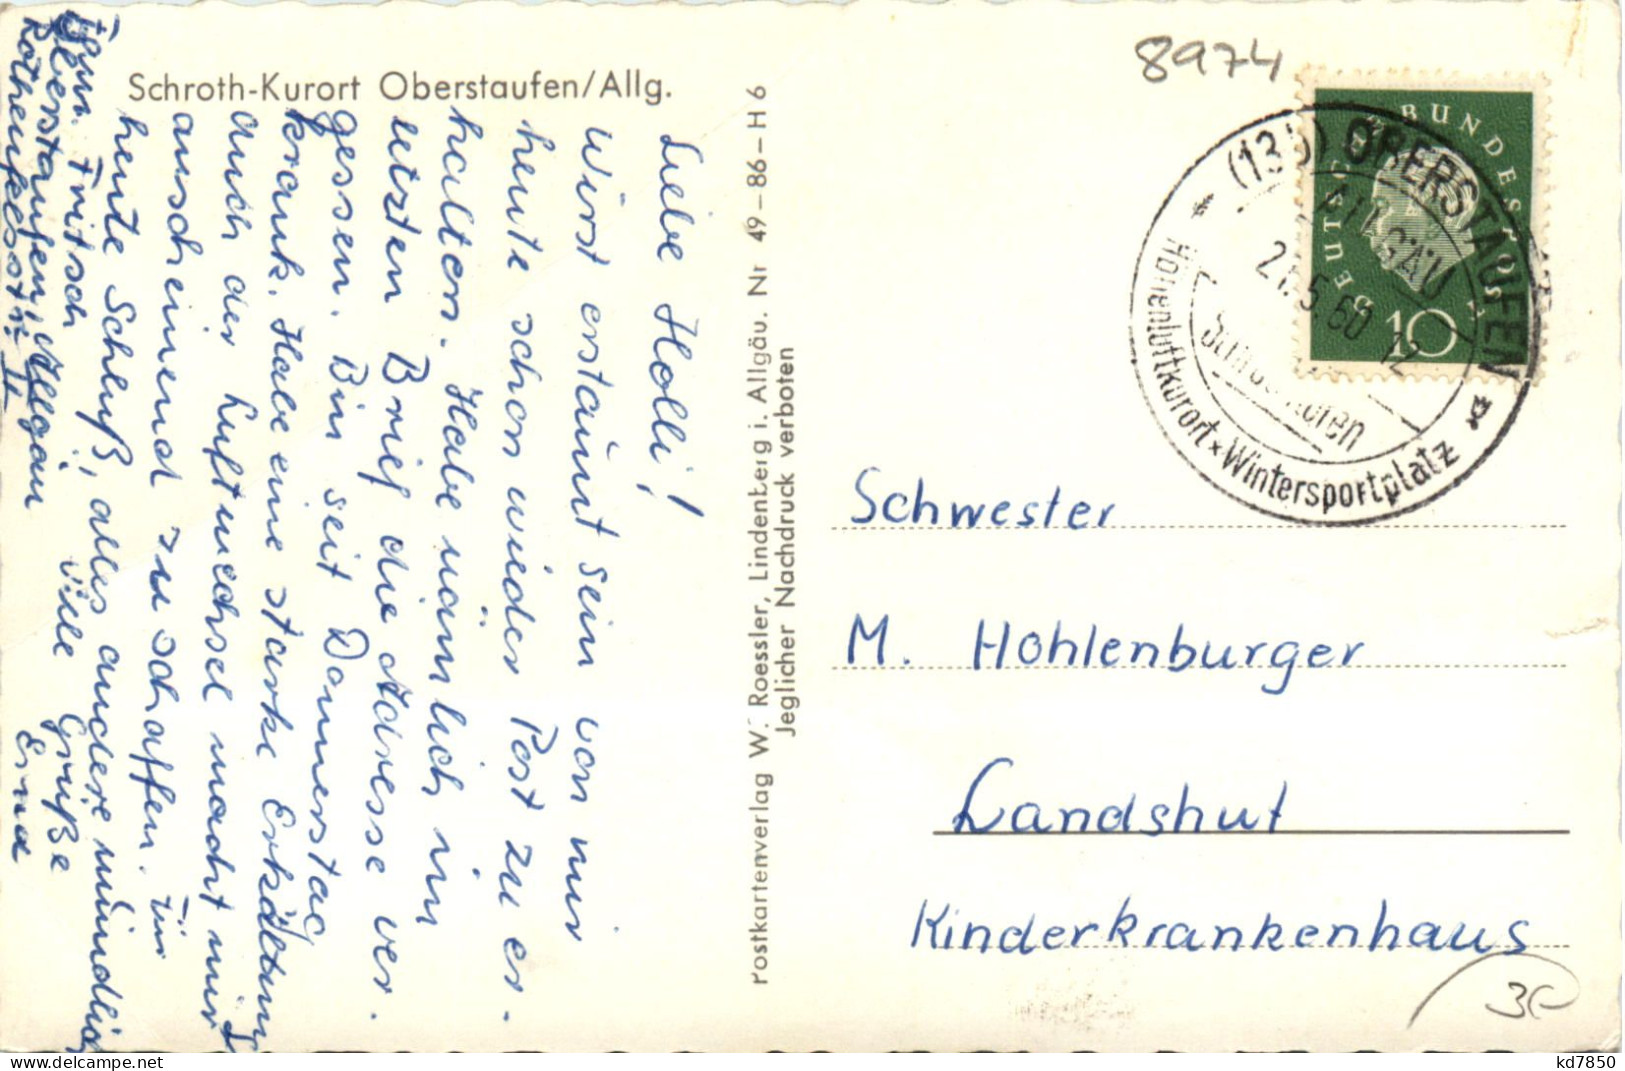 Schroth-Kurort Oberstaufen/Allg.
Liebe Holli!
Wirst erstaunt sein von mir
heute schon wieder Post zu er-
halten. Habe nämlich im
letzten Brief die Adresse ver-
gessen. Bin seit Donnerstag
krank. Habe eine starke Erkältung
auch der Luftwechsel macht mir
anscheinend zu schaffen. Für
heute Schluß, alles andere mündlich
Viele Grüße
Erna
Fritsch
Oberstaufen, Allgäu
Rothenfelsstr.
Postkartenverlag W. Roessler, Lindenberg i. Allgäu. Nr 49-86-H 6
Jeglicher Nachdruck verboten
8974
DEUTSCHE BUNDESPOST
10
OBERSTAUFEN
ALLGÄU
5.60 12
Höhenluftkurort * Wintersportplatz
Schwester
M. Hohlenburger
Landshut
Kinderkrankenhaus
kd7850